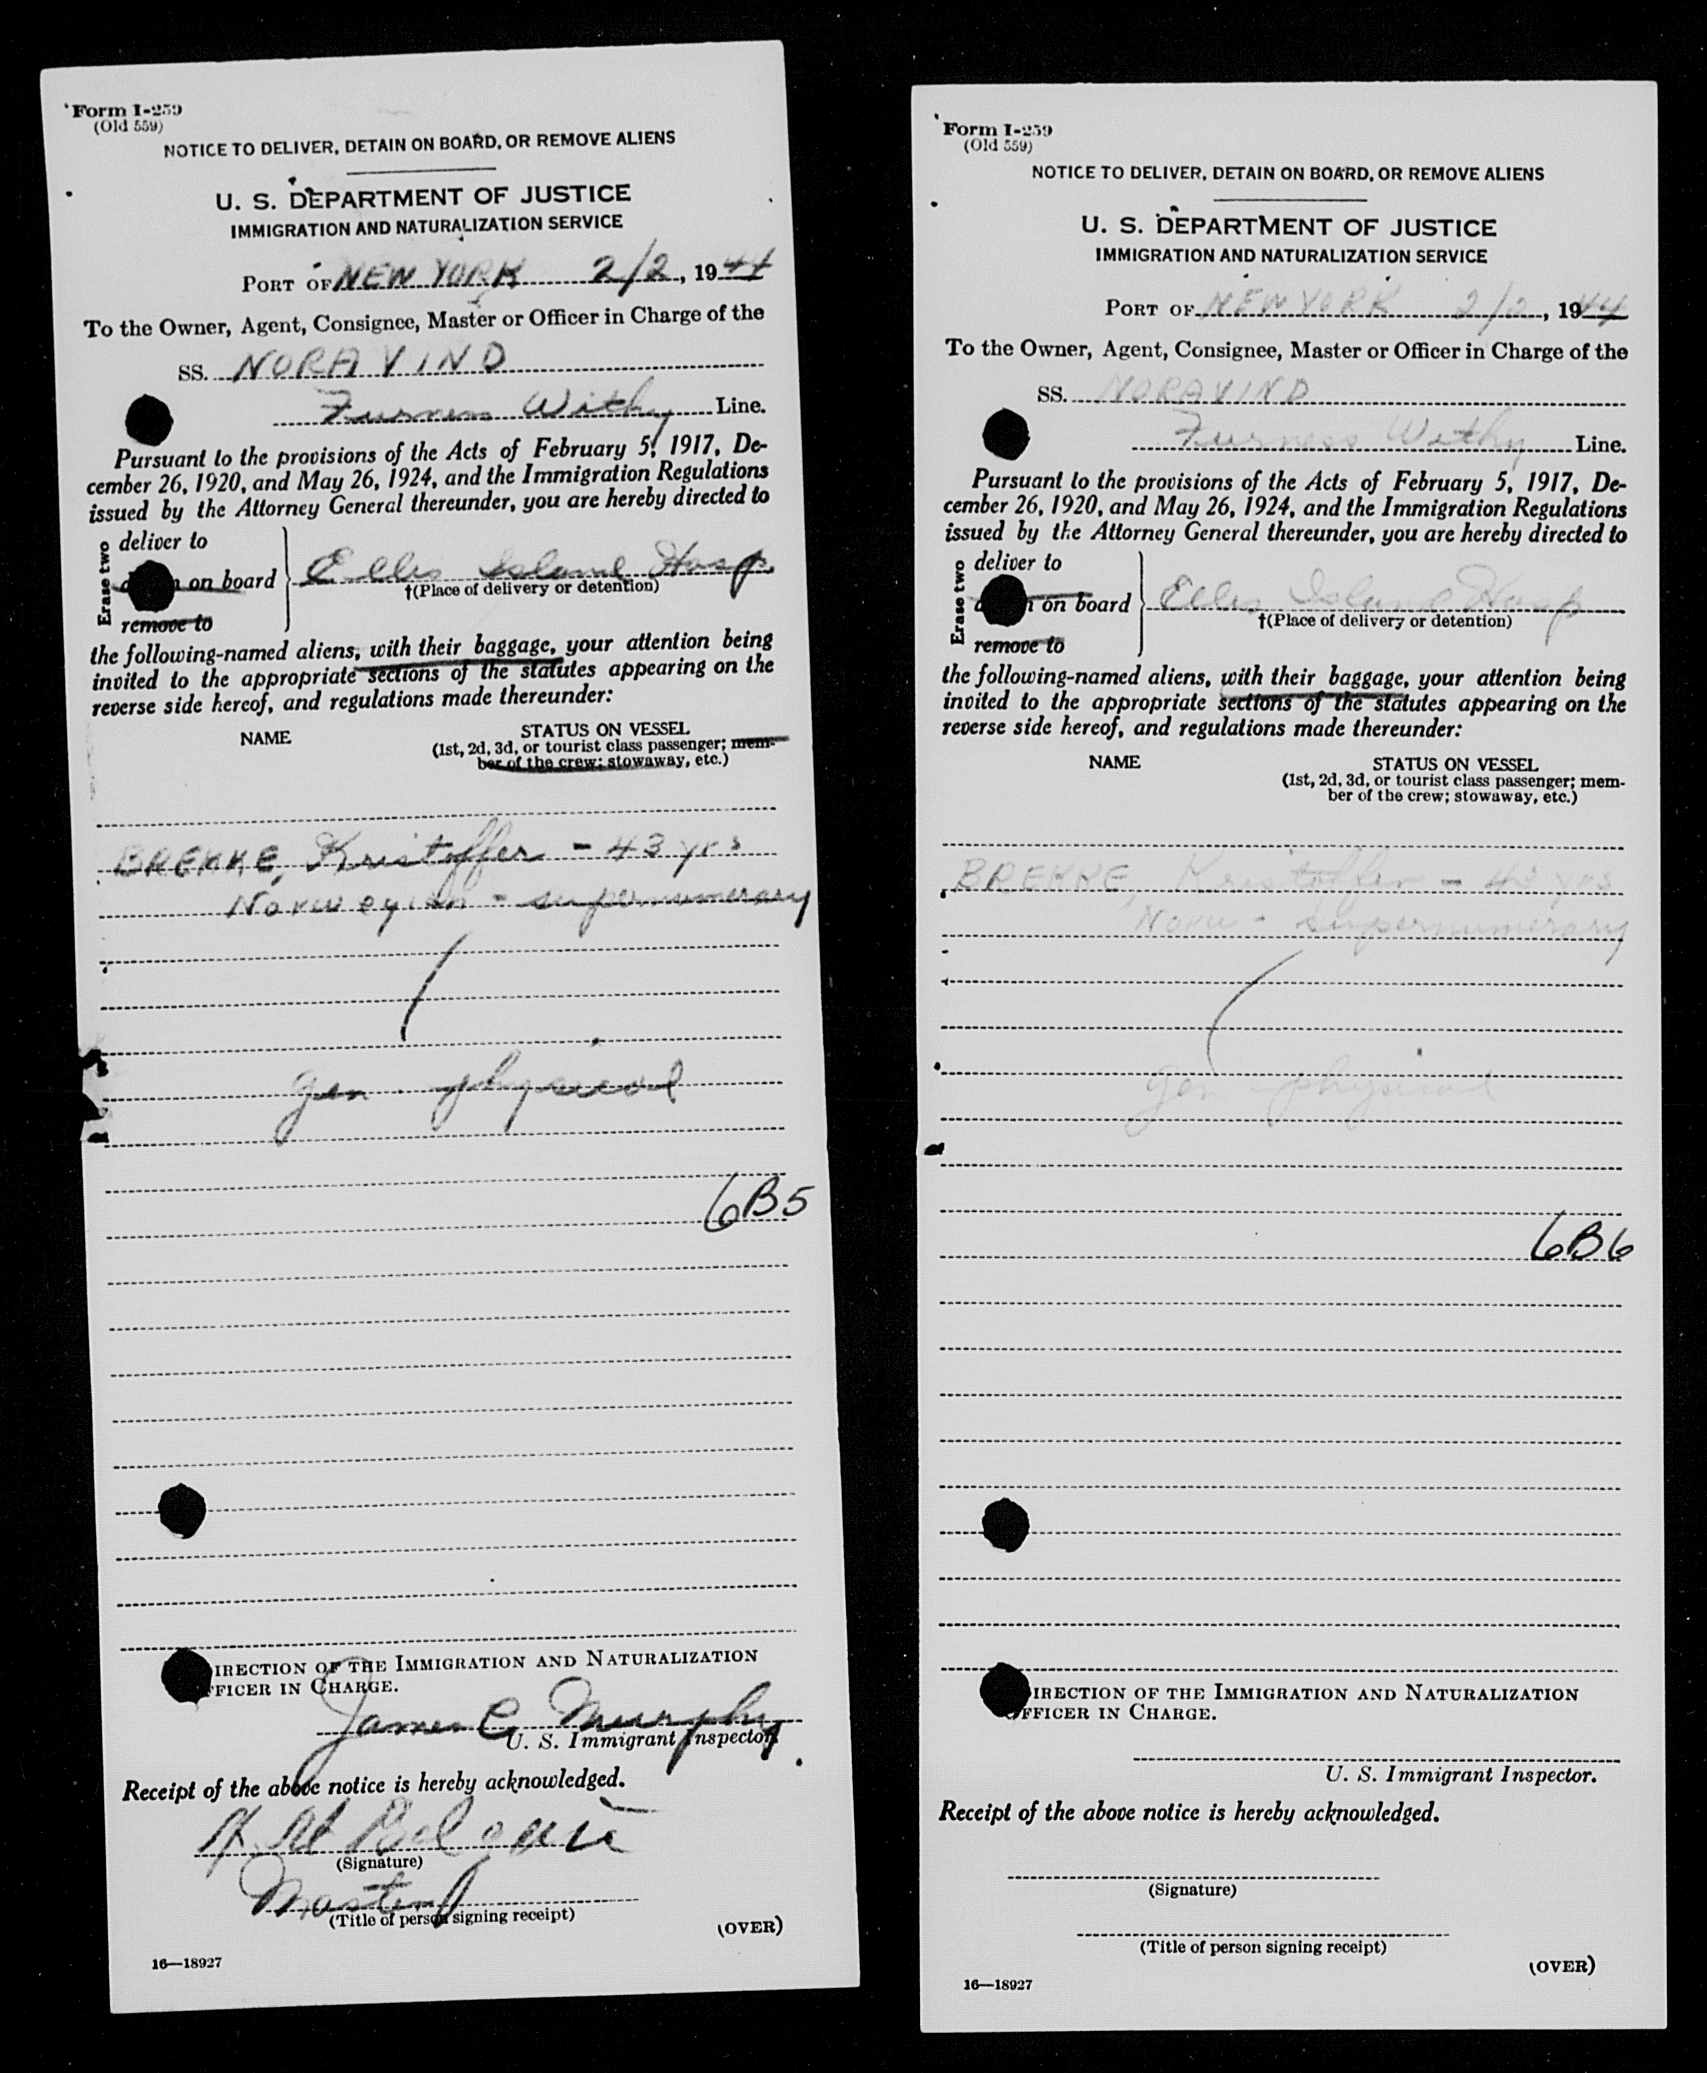 Form I-259
(Old 559)
NOTICE TO DELIVER, DETAIN ON BOARD, OR REMOVE ALIENS
U. S. DEPARTMENT OF JUSTICE
IMMIGRATION AND NATURALIZATION SERVICE
PORT OF NEW YORK 2/2, 1944
To the Owner, Agent, Consignee, Master or Officer in Charge of the
SS. NORAVIND
Furness Withy Line.
Pursuant to the provisions of the Acts of February 5, 1917, De-
cember 26, 1920, and May 26, 1924, and the Immigration Regulations
issued by the Attorney General thereunder, you are hereby directed to
Erase two
deliver to
on board
remove to
Ellis Island Hosp.
†(Place of delivery or detention)
the following-named aliens, with their baggage, your attention being
invited to the appropriate sections of the statutes appearing on the
reverse side hereof, and regulations made thereunder:
NAME
STATUS ON VESSEL
(1st, 2d, 3d, or tourist class passenger; mem-
ber of the crew; stowaway, etc.)
BREKKE, Kristoffer - 43 yrs
Norwegian - supernumerary
gen. physical
6B5
IRECTION OF THE IMMIGRATION AND NATURALIZATION
FFICER IN CHARGE.
James C Murphy
U. S. Immigrant Inspector.
Receipt of the above notice is hereby acknowledged.
(Signature)
Master
(Title of person signing receipt)
(OVER)
16—18927
Form I-259
(Old 559)
NOTICE TO DELIVER, DETAIN ON BOARD, OR REMOVE ALIENS
U. S. DEPARTMENT OF JUSTICE
IMMIGRATION AND NATURALIZATION SERVICE
PORT OF NEW YORK 2/2, 1944
To the Owner, Agent, Consignee, Master or Officer in Charge of the
SS. NORAVIND
Furness Withy Line.
Pursuant to the provisions of the Acts of February 5, 1917, De-
cember 26, 1920, and May 26, 1924, and the Immigration Regulations
issued by the Attorney General thereunder, you are hereby directed to
Erase two
deliver to
on board
remove to
Ellis Island Hosp
†(Place of delivery or detention)
the following-named aliens, with their baggage, your attention being
invited to the appropriate sections of the statutes appearing on the
reverse side hereof, and regulations made thereunder:
NAME
STATUS ON VESSEL
(1st, 2d, 3d, or tourist class passenger; mem-
ber of the crew; stowaway, etc.)
BREKKE, Kristoffer - 43 yrs
Norw - supernumerary
gen physical
6B6
IRECTION OF THE IMMIGRATION AND NATURALIZATION
FFICER IN CHARGE.
U. S. Immigrant Inspector.
Receipt of the above notice is hereby acknowledged.
(Signature)
(Title of person signing receipt)
(OVER)
16—18927